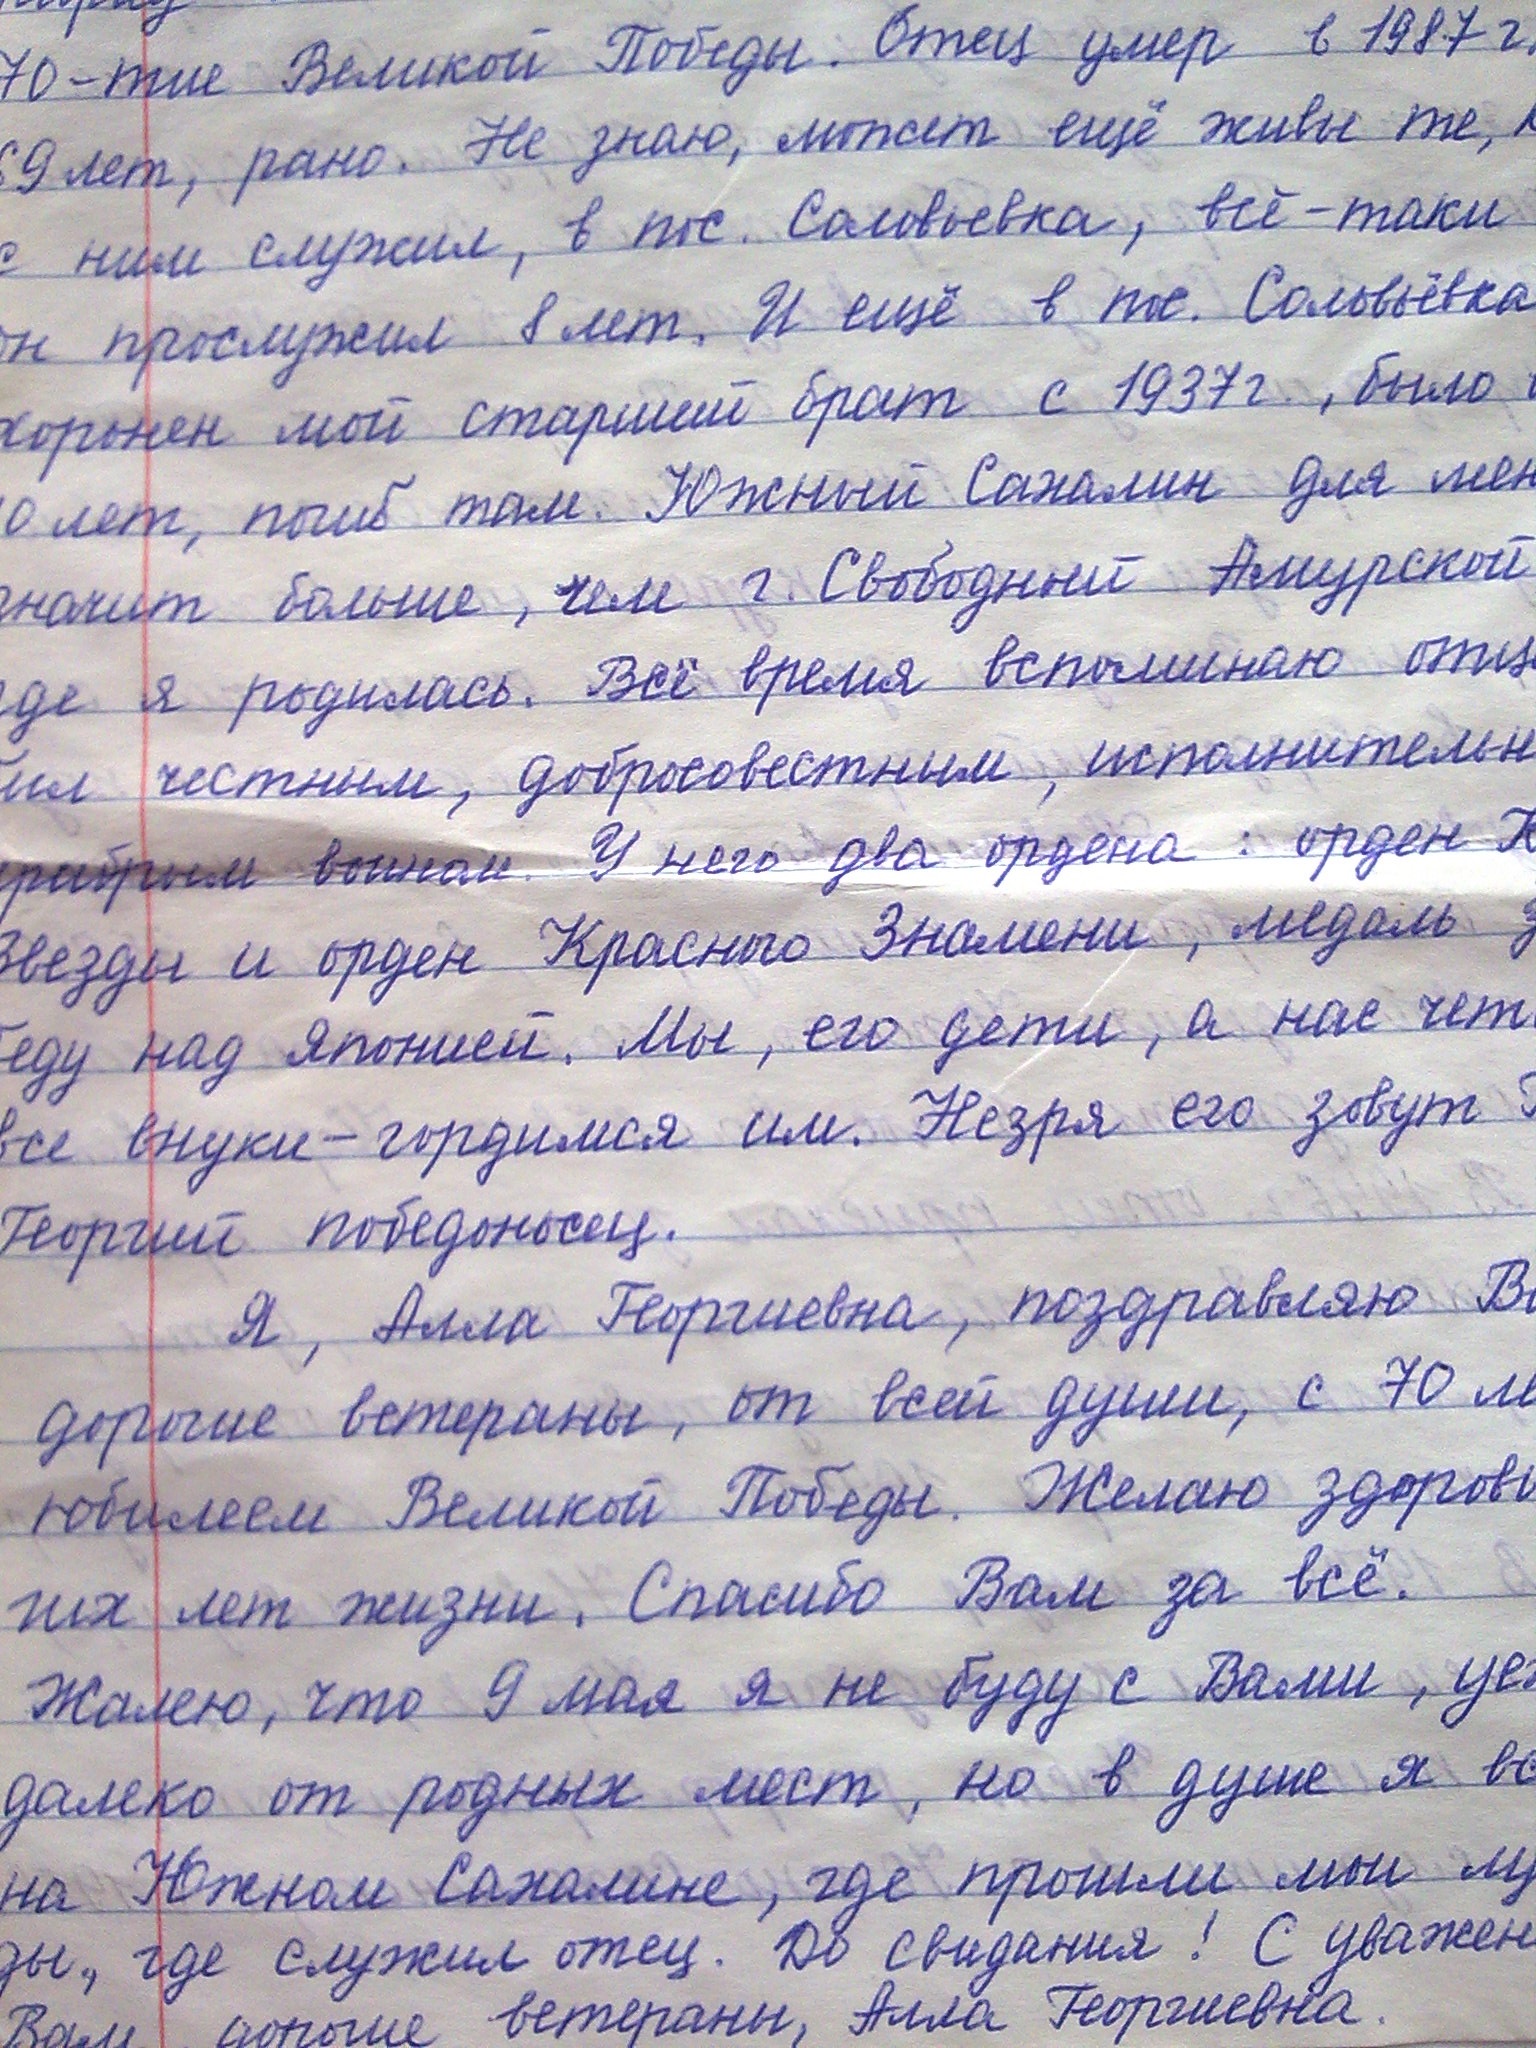 70-тие Великой Победы. Отец умер в 1987 г.
69 лет, рано. Не знаю, может ещё живы те,
с ним служил, в пос. Соловьевка, всё-таки
он прослужил 8 лет. И ещё в пос. Соловьёвка
хоронен мой старший брат с 1937 г., было
10 лет, погиб там. Южный Сахалин для мен
значит больше, чем г. Свободный Амурской
где я родилась. Всё время вспоминаю отца
был честным, добросовестным, исполнительн
храбрым воином. У него два ордена: орден К
Звезды и орден Красного Знамени, медаль з
беду над Японией. Мы, его дети, а нас четв
все внуки-гордимся им. Незря его зовут
Георгий победоносец.
Я, Алла Георгиевна, поздравляю Ва
дорогие ветераны, от всей души, с 70 ле
юбилеем Великой Победы. Желаю здоровь
гих лет жизни. Спасибо Вам за всё.
Жалею, что 9 мая я не буду с Вами, уез
далеко от родных мест, но в душе я вс
на Южном Сахалине, где прошли мои лу
ды, где служил отец. До свидания! С уважен
Вам, дорогие ветераны, Алла Георгиевна.